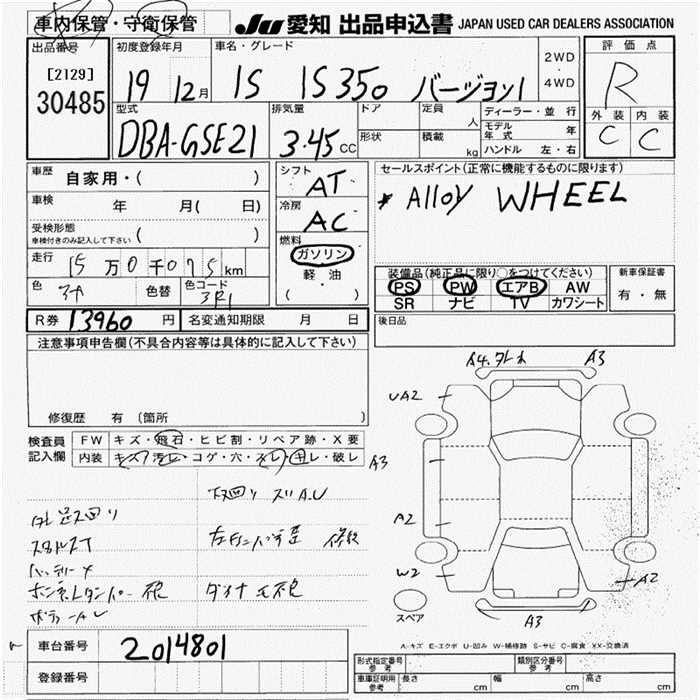 車内保管・守衛保管
JU 愛知 出品申込書 JAPAN USED CAR DEALERS ASSOCIATION
出品番号
[2129]
30485
初度登録年月
19 12月
車名・グレード
IS IS350 バージョンI
2WD
・
4WD
評価点
R
外装 内装
C C
型式
DBA-GSE21
排気量
3.45 CC
ドア
形状
定員
人
積載
kg
ディーラー・並行
モデル年式 年
ハンドル 左・右
車歴
自家用・( )
車検
年 月( 日)
受検形態
車検付きのみ記入して下さい ( )
走行
15万0千075km
色
色替
色コード
3R1
シフト
AT
冷房
AC
燃料
ガソリン
・
軽・油
( )
セールスポイント(正常に機能するものに限ります)
* Alloy WHEEL
装備品(純正品に限り○をつけてください)
PS PW エアB AW
SR ナビ TV カワシート
新車保証書
有・無
R券 13960 円
名変通知期限 月 日
後日品
注意事項申告欄(不具合内容等は具体的に記入して下さい)
修復歴 有 〔箇所 〕
検査員
記入欄
FW キズ・飛石・ヒビ割・リペア跡・X要
内装 キズ・汚レ・コゲ・穴・スレ・キレ・破レ
A3
UA2
A3
A2
W2
A2
A3
スペア
A-キズ E-エクボ U-凹み W-補修跡 S-サビ C-腐食 XX-交換済
車台番号 2014801
登録番号
形式指定番号
参考
類別区分番号
参考
車庫証明用
参考
長さ cm
幅 cm
高さ cm